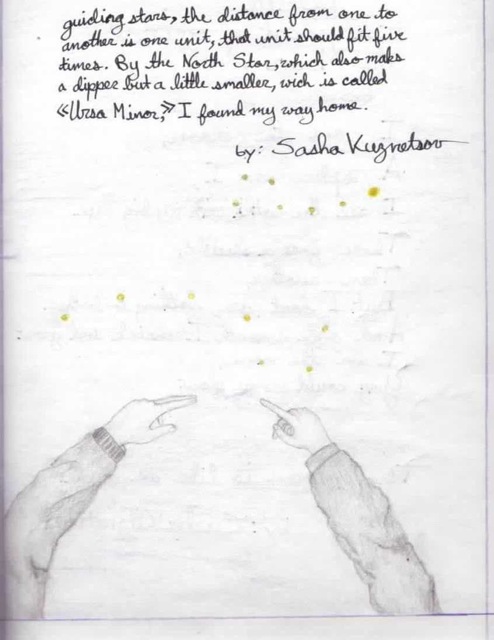 guiding stars, the distance from one to
another is one unit, that unit should fit five
times. By the North Star, which also makes
a dipper but a little smaller, wich is called
«Ursa Minor,» I found my way home.
by: Sasha Kuznetsov